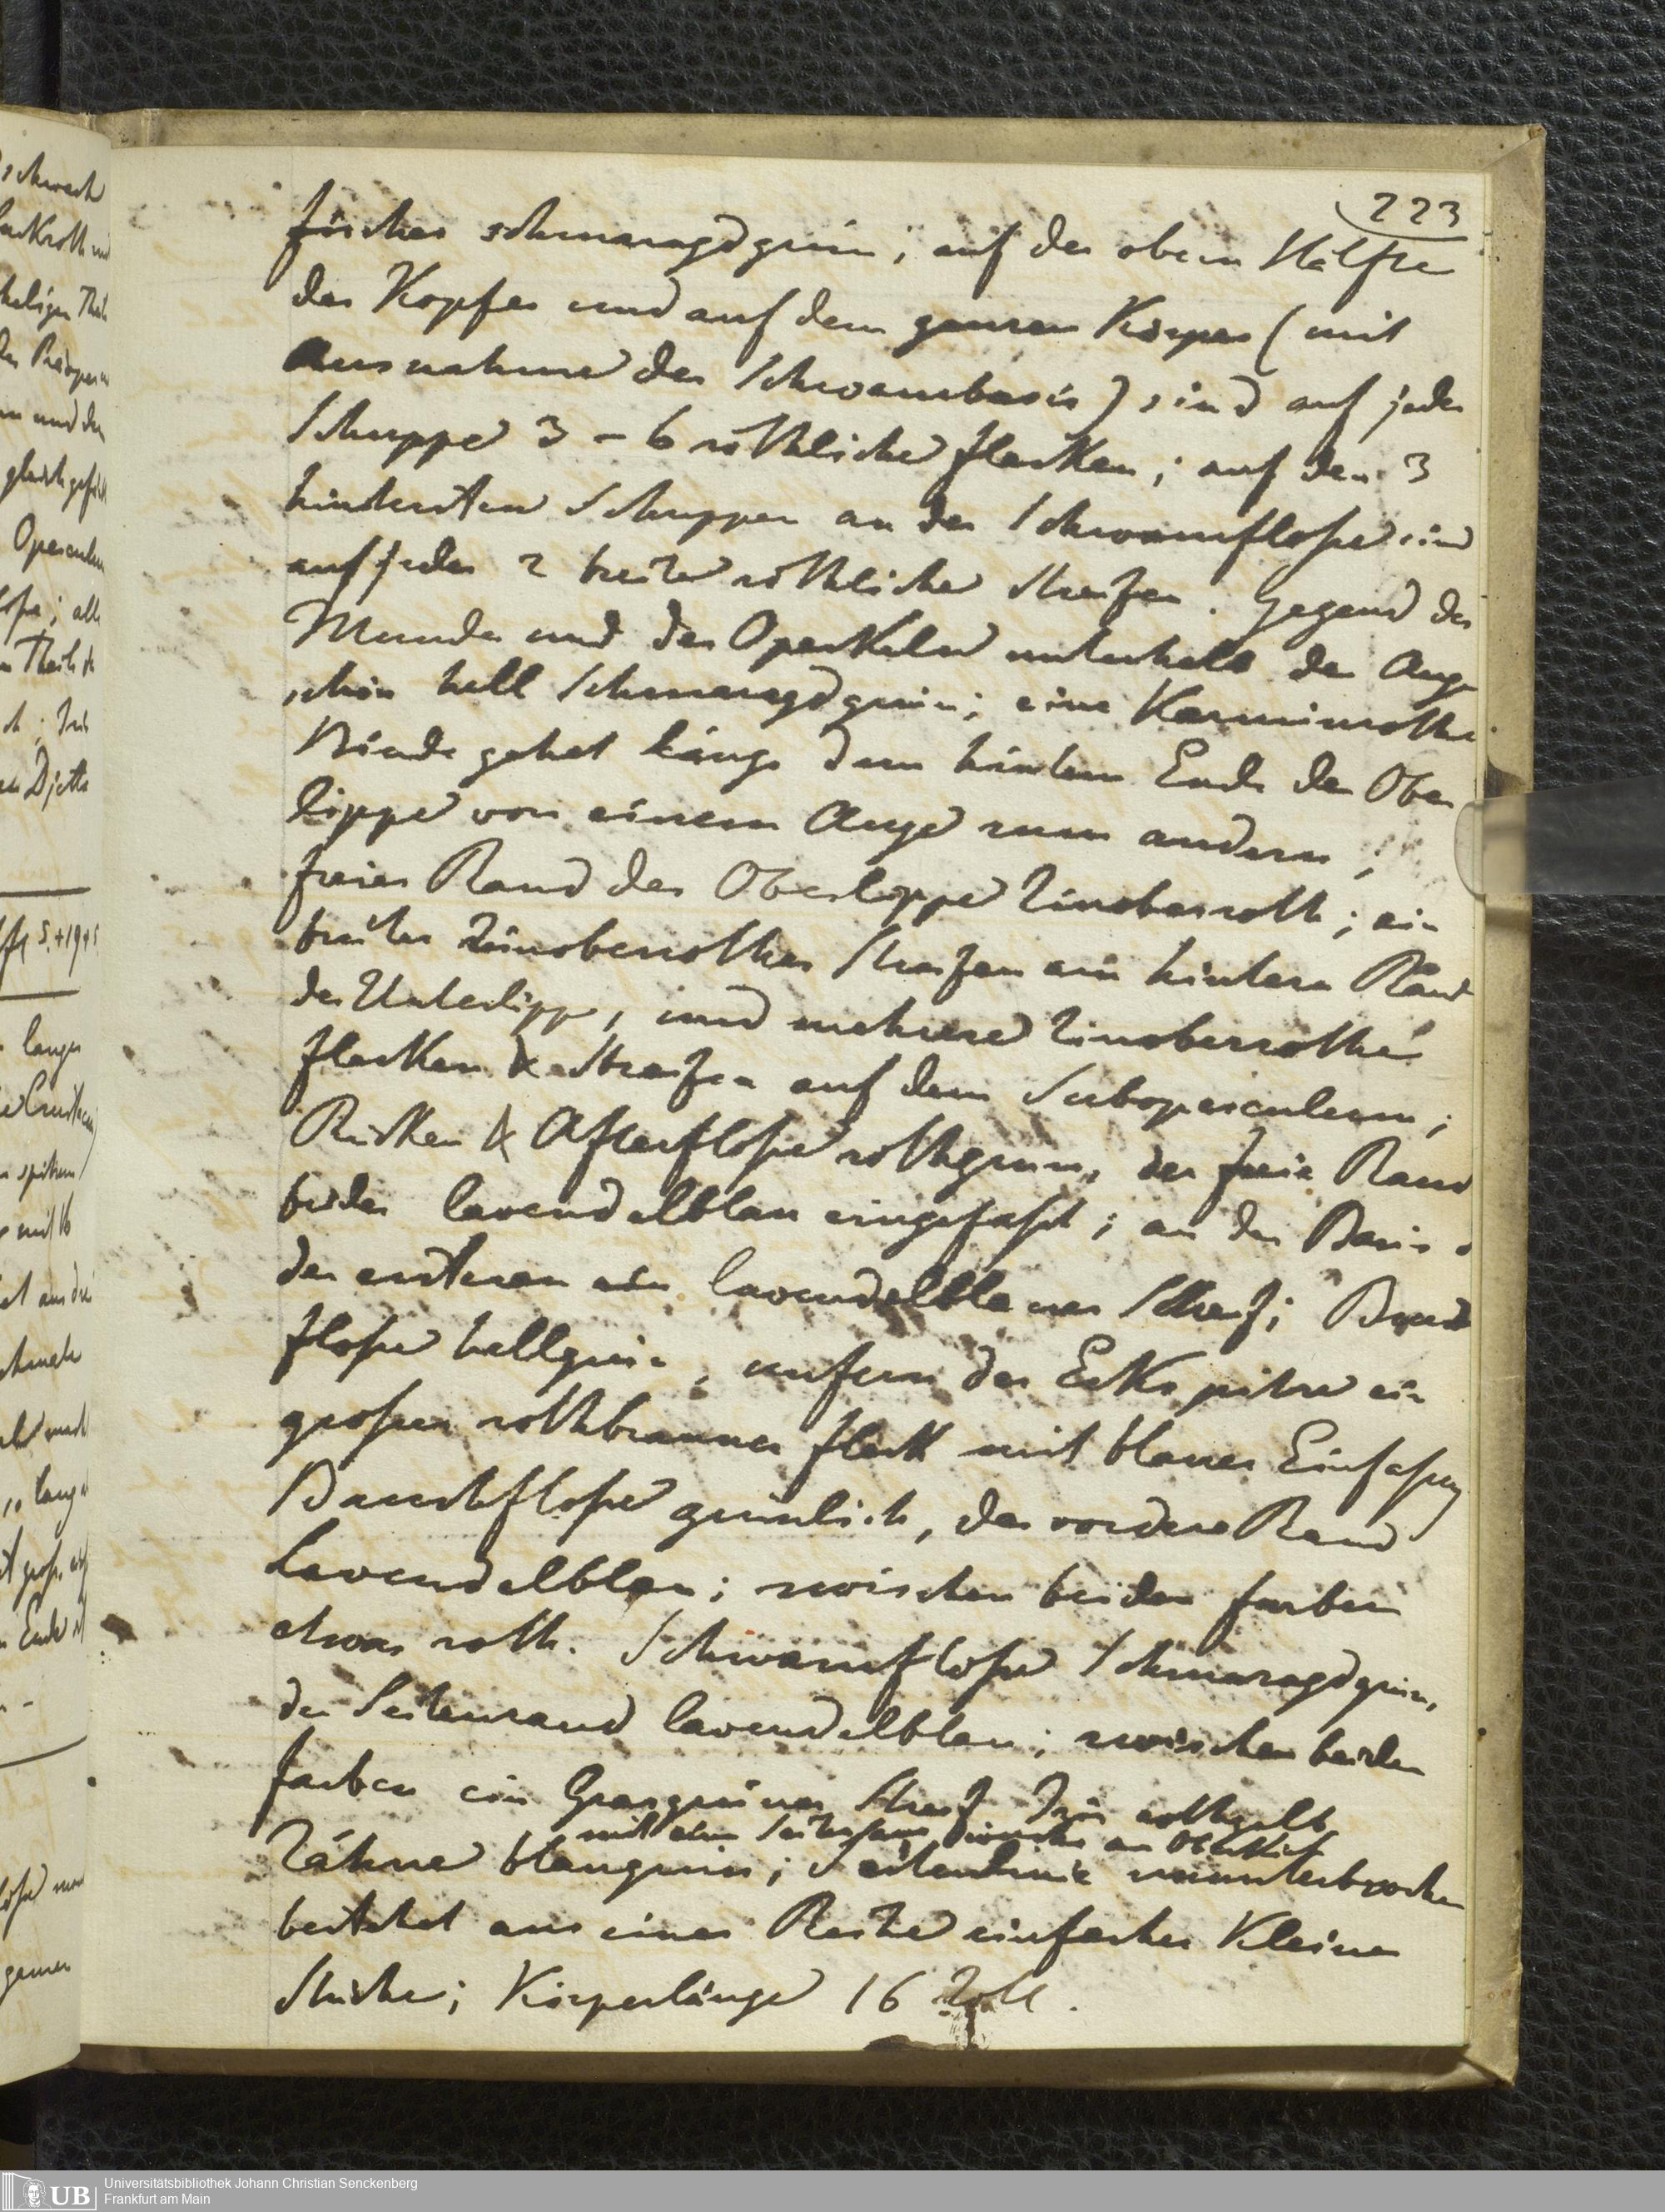 223
fisches schmaragdgrün; auf der obern Hälfte
des Kopfes und auf dem ganzen Körper (mit
Ausnahme der Schwanzbasis) sind auf jeder
Schuppe 3 – 6 röthliche Flecken; auf den 3
hintersten Schuppen an der Schwanzfloße sind
auf jeder 2 breite röthliche Streifen. Gegend des
Mundes und des Operkels unterhalb der Auge
schön hell Schmaragdgrün; eine Karminrothe
Binde gehet längs dem hintern Ende der Ober
lippe von einem Auge zum andern;
freier Rand der Oberlippe Zinoberroth; ein
breiter Zinoberrother Streifen am hintern Rand
der Unterlippe, und mehrere Zinoberrothe
Flecken & Streifen auf dem Suboperculum;
Rücken & Afterfloße rothgrün, der freie Rand
beider lavendelblau eingefaßt; an der Basis
der ersteren ein lavendelblauer Streif; Brust
floße hellgrün, unfern der Eckspitze ein
großer rothbrauner Fleck mit blauer Einfaßung
Bauchfloße grünlich, der vordere Rand
Lavendelblau; zwischen beiden Farben
etwas roth. Schwanzfloße Schmaragdgrün,
der Seitenrand lavendelblau; zwischen beiden
Farben ein Grasgrüner Streif Iris rothgelb
mit am Oberkiefer
Zähne blaugrün; Seitenlinie ununterbrochen
bestehet aus einer Reihe einfacher Kleiner
Striche; Körperlänge 16 Zoll.
Universitätsbibliothek Johann Christian Senckenberg
Frankfurt am Main
UB